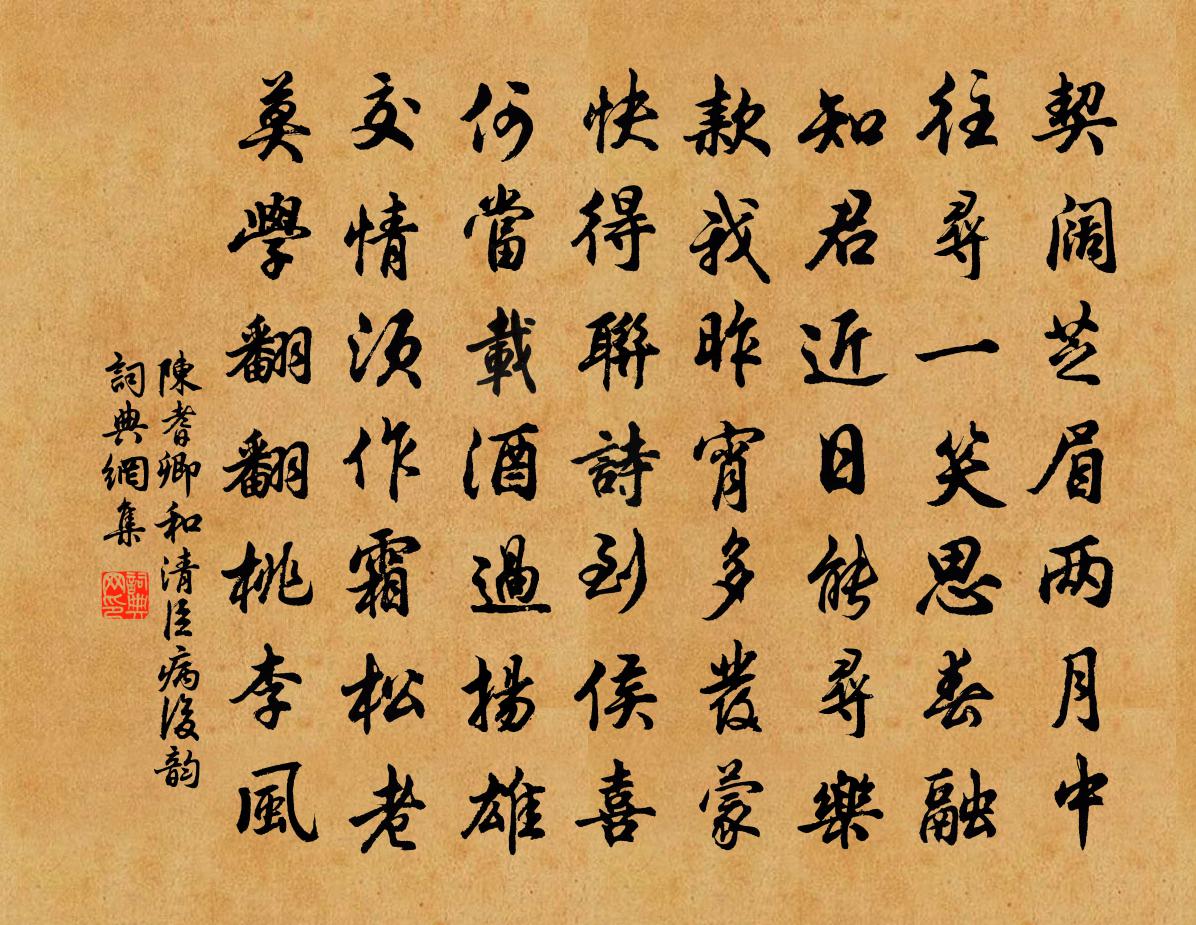 契阔芝眉两月中
往尋一笑思春融
知君近日能尋樂
款我昨宵多發蒙
快得聯詩到侯喜
何當載酒過揚雄
交情须作霜松老
莫學翻翻桃李風
陳耆卿和清臣病後韵
詞典網集
詞典网印